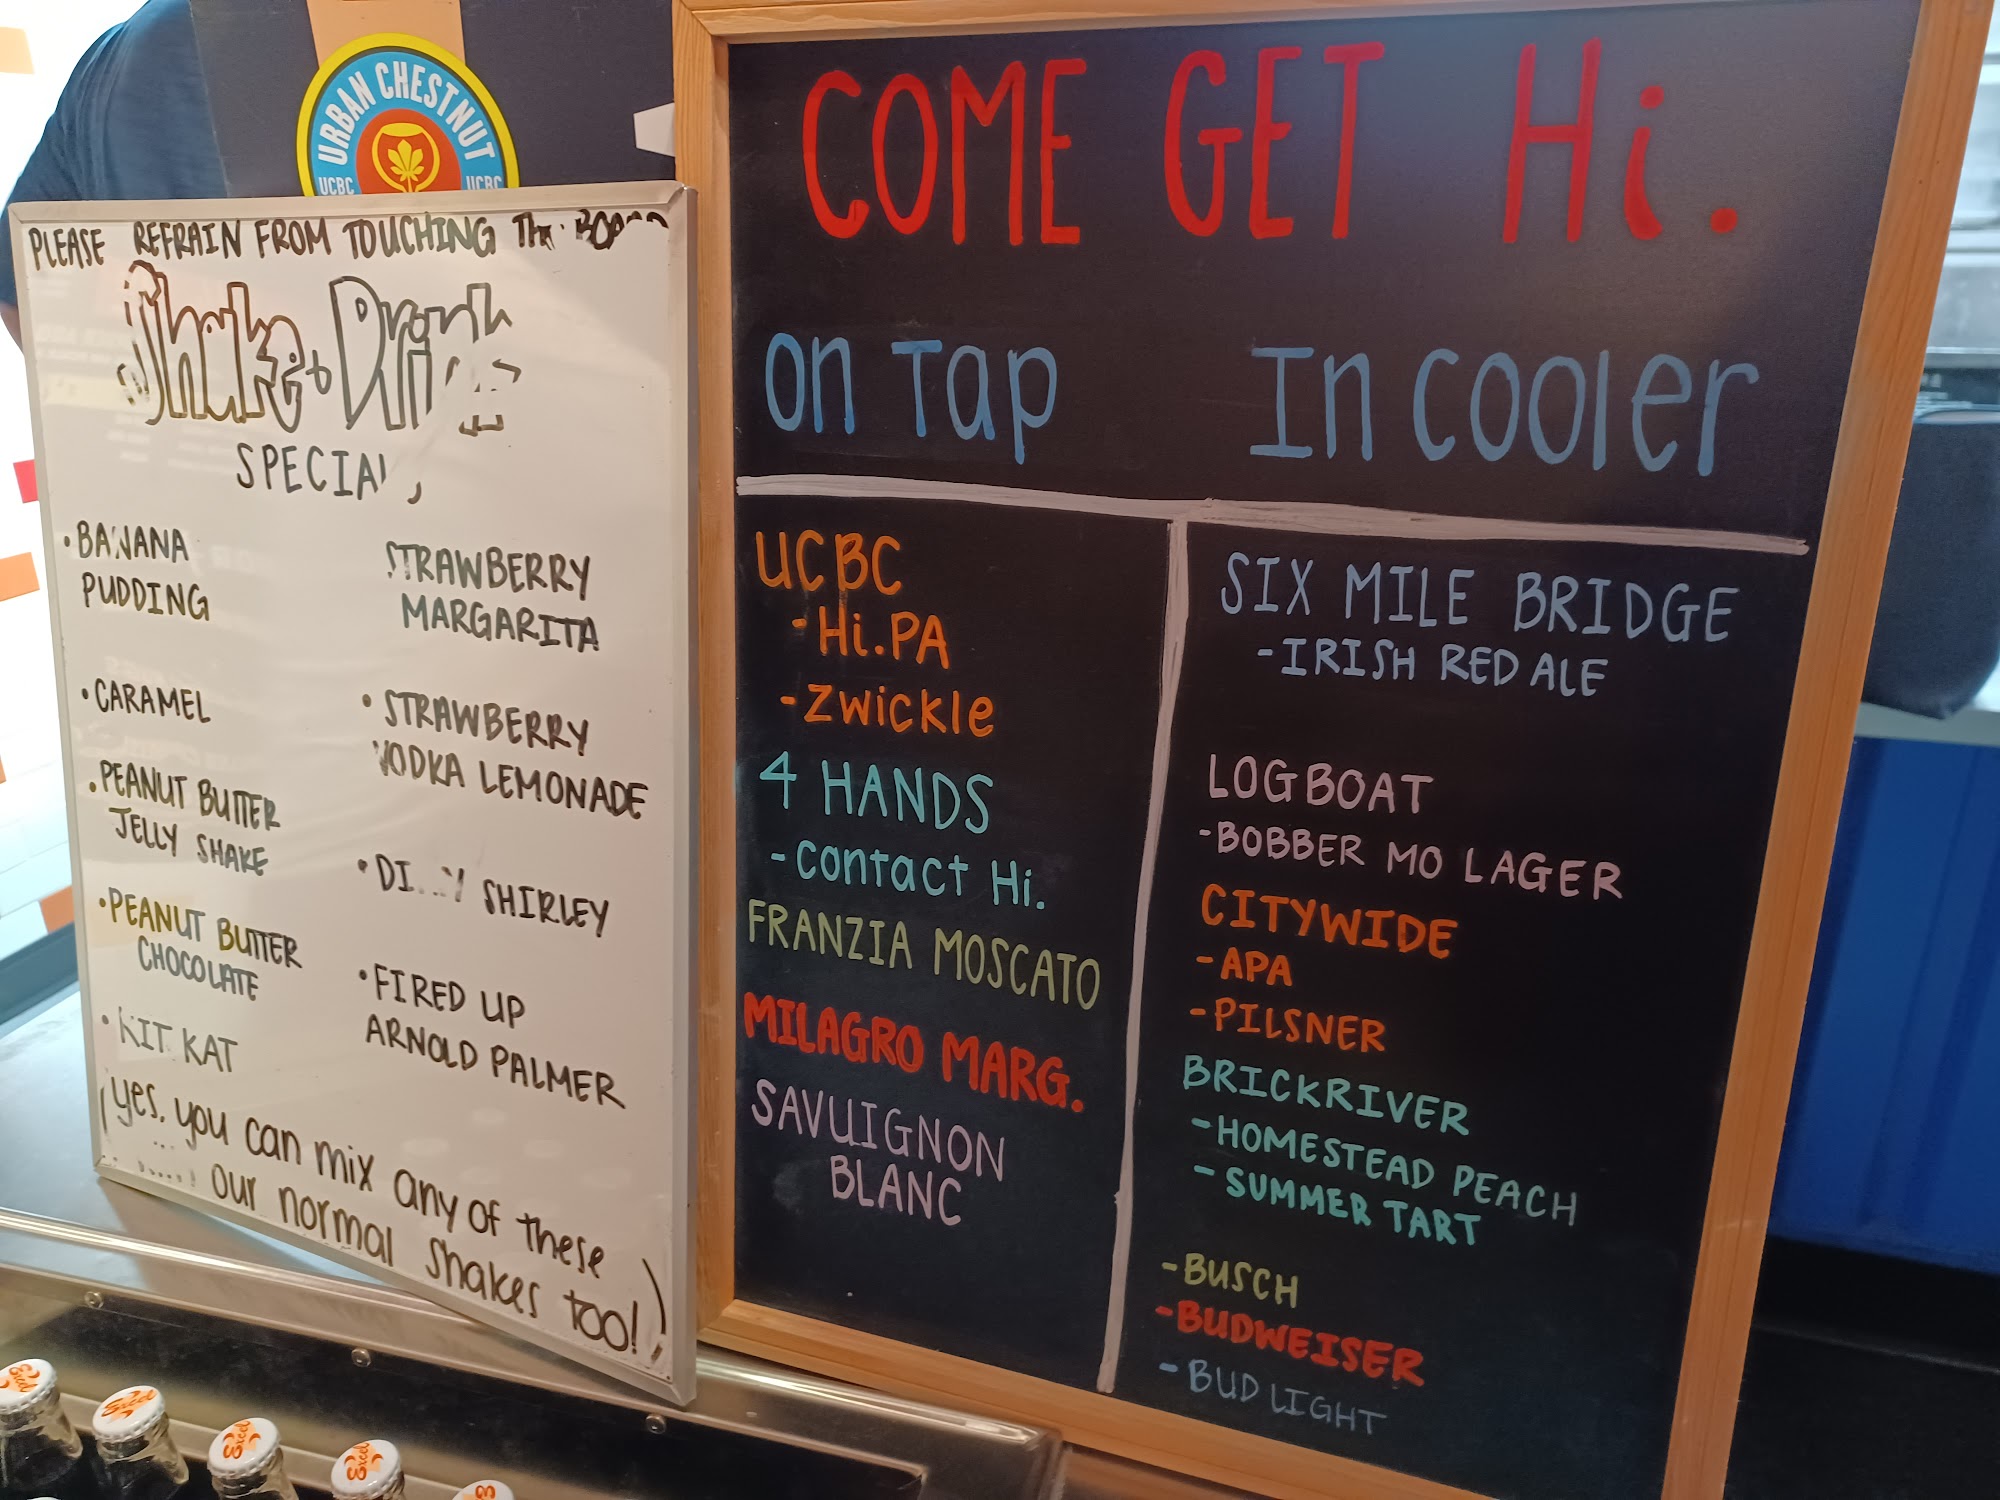 URBAN CHESTNUT
UCBC UCBC
PLEASE REFRAIN FROM TOUCHING
Shake + Drink
• BANANA
PUDDING
• CARAMEL
• PEANUT BUTTER
JELLY SHAKE
• PEANUT BUTTER
CHOCOLATE
• KIT KAT
STRAWBERRY
MARGARITA
• STRAWBERRY
VODKA LEMONADE
• SHIRLEY
• FIRED UP
ARNOLD PALMER
(yes, you can mix any of these
our normal shakes too!)
COME GET Hi.
On Tap
UCBC
- Hi.PA
- Zwickle
4 HANDS
- Contact Hi.
FRANZIA MOSCATO
MILAGRO MARG.
SAVUIGNON
BLANC
In Cooler
SIX MILE BRIDGE
- IRISH RED ALE
LOGBOAT
- BOBBER MO LAGER
CITYWIDE
- APA
- PILSNER
BRICKRIVER
- HOMESTEAD PEACH
- SUMMER TART
- BUSCH
- BUDWEISER
- BUD LIGHT
Excel
Excel
Excel
Excel